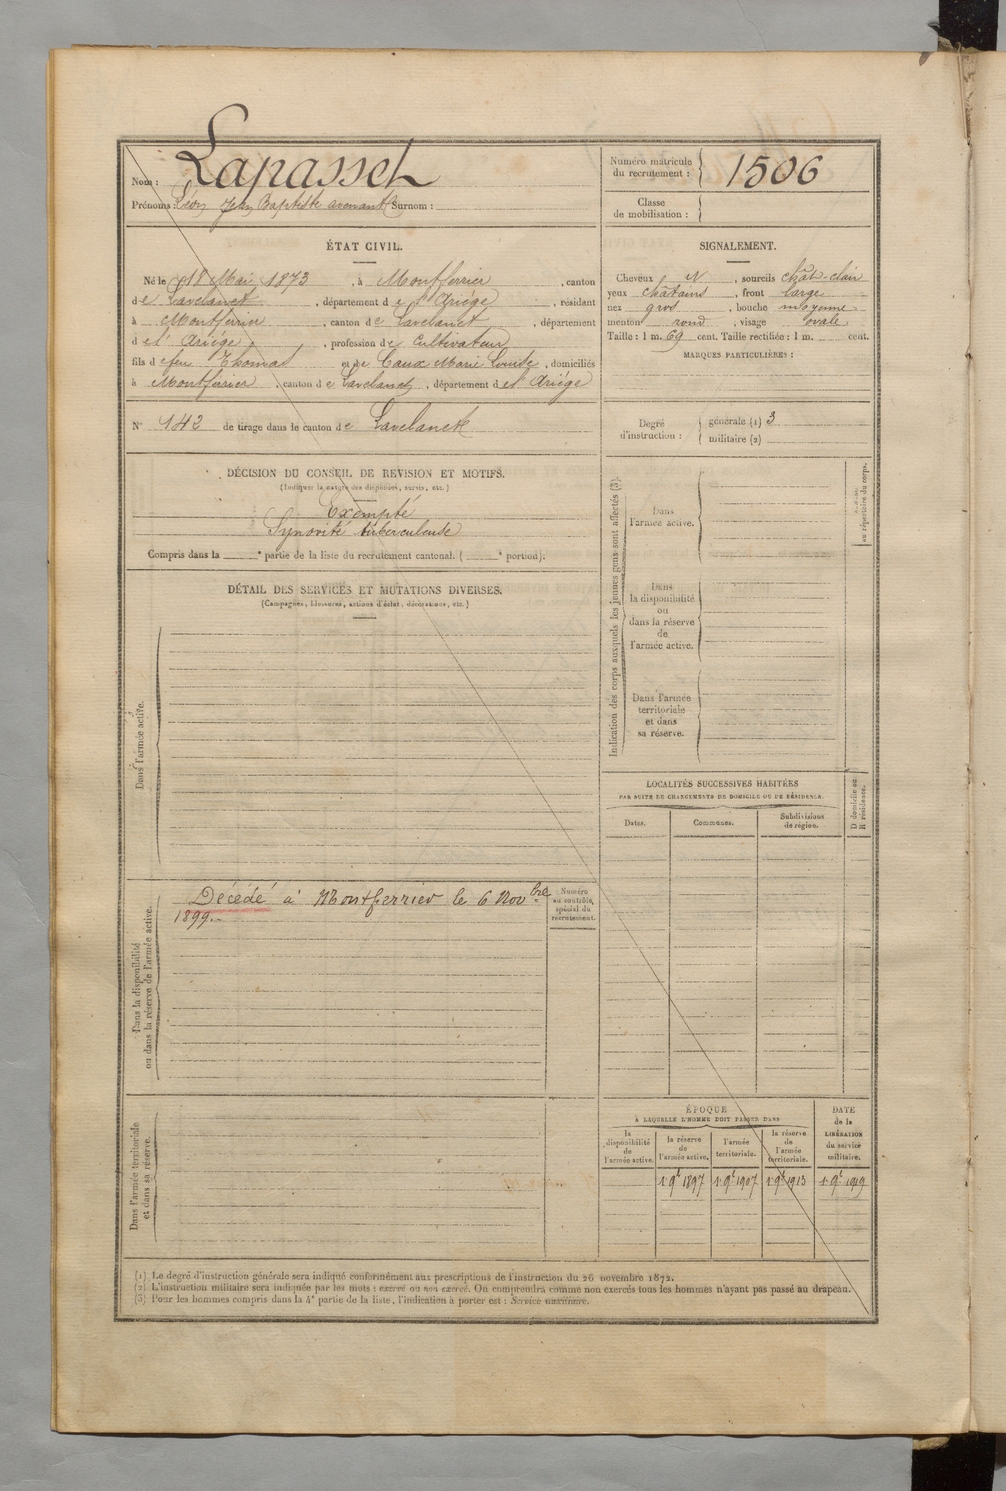 Nom : Lapasset
Prénoms : Léon Jean Baptiste Surnom :
Numéro matricule
du recrutement : 1506
Classe
de mobilisation :
ÉTAT CIVIL.
Né le 18 Mai 1873, à Montferrier, canton
de Lavelanet, département de l'Ariége, résidant
à Montferrier, canton de Lavelanet, département
de l'Ariége, profession de Cultivateur
fils de feu Thomas et de Caux Marie Louise, domiciliés
à Montferrier, canton de Lavelanet, département de l'Ariége
N° 142 de tirage dans le canton de Lavelanet
SIGNALEMENT.
Cheveux N, sourcils chât-clair
yeux châtains, front large
nez gros, bouche moyenne
menton rond, visage ovale
Taille : 1 m. 69 cent. Taille rectifiée : 1 m. cent.
MARQUES PARTICULIÈRES :
Degré
d'instruction :
générale (1) 3
militaire (2)
DÉCISION DU CONSEIL DE REVISION ET MOTIFS.
(Indiquer la nature des dispenses, sursis, etc.)
Exempté
Synovite tuberculeuse
Compris dans la e partie de la liste du recrutement cantonal. ( e portion).
DÉTAIL DES SERVICES ET MUTATIONS DIVERSES.
(Campagnes, blessures, actions d'éclat, décorations, etc.)
Dans l'armée active.
Indication des corps auxquels les jeunes gens sont affectés (3).
Dans
l'armée active.
Dans
la disponibilité
ou
dans la réserve
de
l'armée active.
Dans l'armée
territoriale
et dans
sa réserve.
au répertoire du corps.
LOCALITÉS SUCCESSIVES HABITÉES
PAR SUITE DE CHANGEMENTS DE DOMICILE OU DE RÉSIDENCE.
Dates.
Communes.
Subdivisions
de région.
D domicile ou
R résidence.
Dans la disponibilité
ou dans la réserve de l'armée active.
Décédé à Montferrier le 6 Nov bre
1899.
Numéro
au contrôle
spécial du
recrutement.
Dans l'armée territoriale
et dans sa réserve.
ÉPOQUE
À LAQUELLE L'HOMME DOIT PASSER DANS
la
disponibilité
de
l'armée active.
la réserve
de
l'armée active.
l'armée
territoriale.
la réserve
de
l'armée
territoriale.
DATE
de la
LIBÉRATION
du service
militaire.
1 9bre 1897
1 9bre 1907
1 9bre 1913
1 9bre 1919
(1) Le degré d'instruction générale sera indiqué conformément aux prescriptions de l'instruction du 26 novembre 1872.
(2) L'instruction militaire sera indiquée par les mots : exercé ou non exercé. On comprendra comme non exercés tous les hommes n'ayant pas passé au drapeau.
(3) Pour les hommes compris dans la 4e partie de la liste, l'indication à porter est : Service auxiliaire.